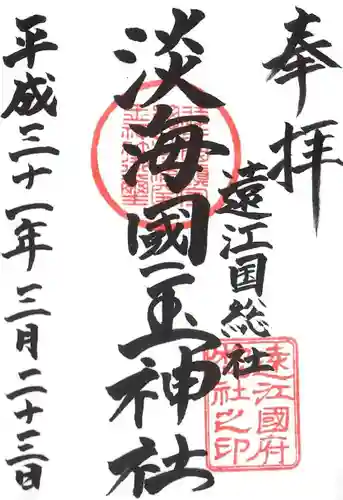 奉拝
遠江国総社
淡海國玉神社
平成三十一年三月二十三日
遠江國府
社之印